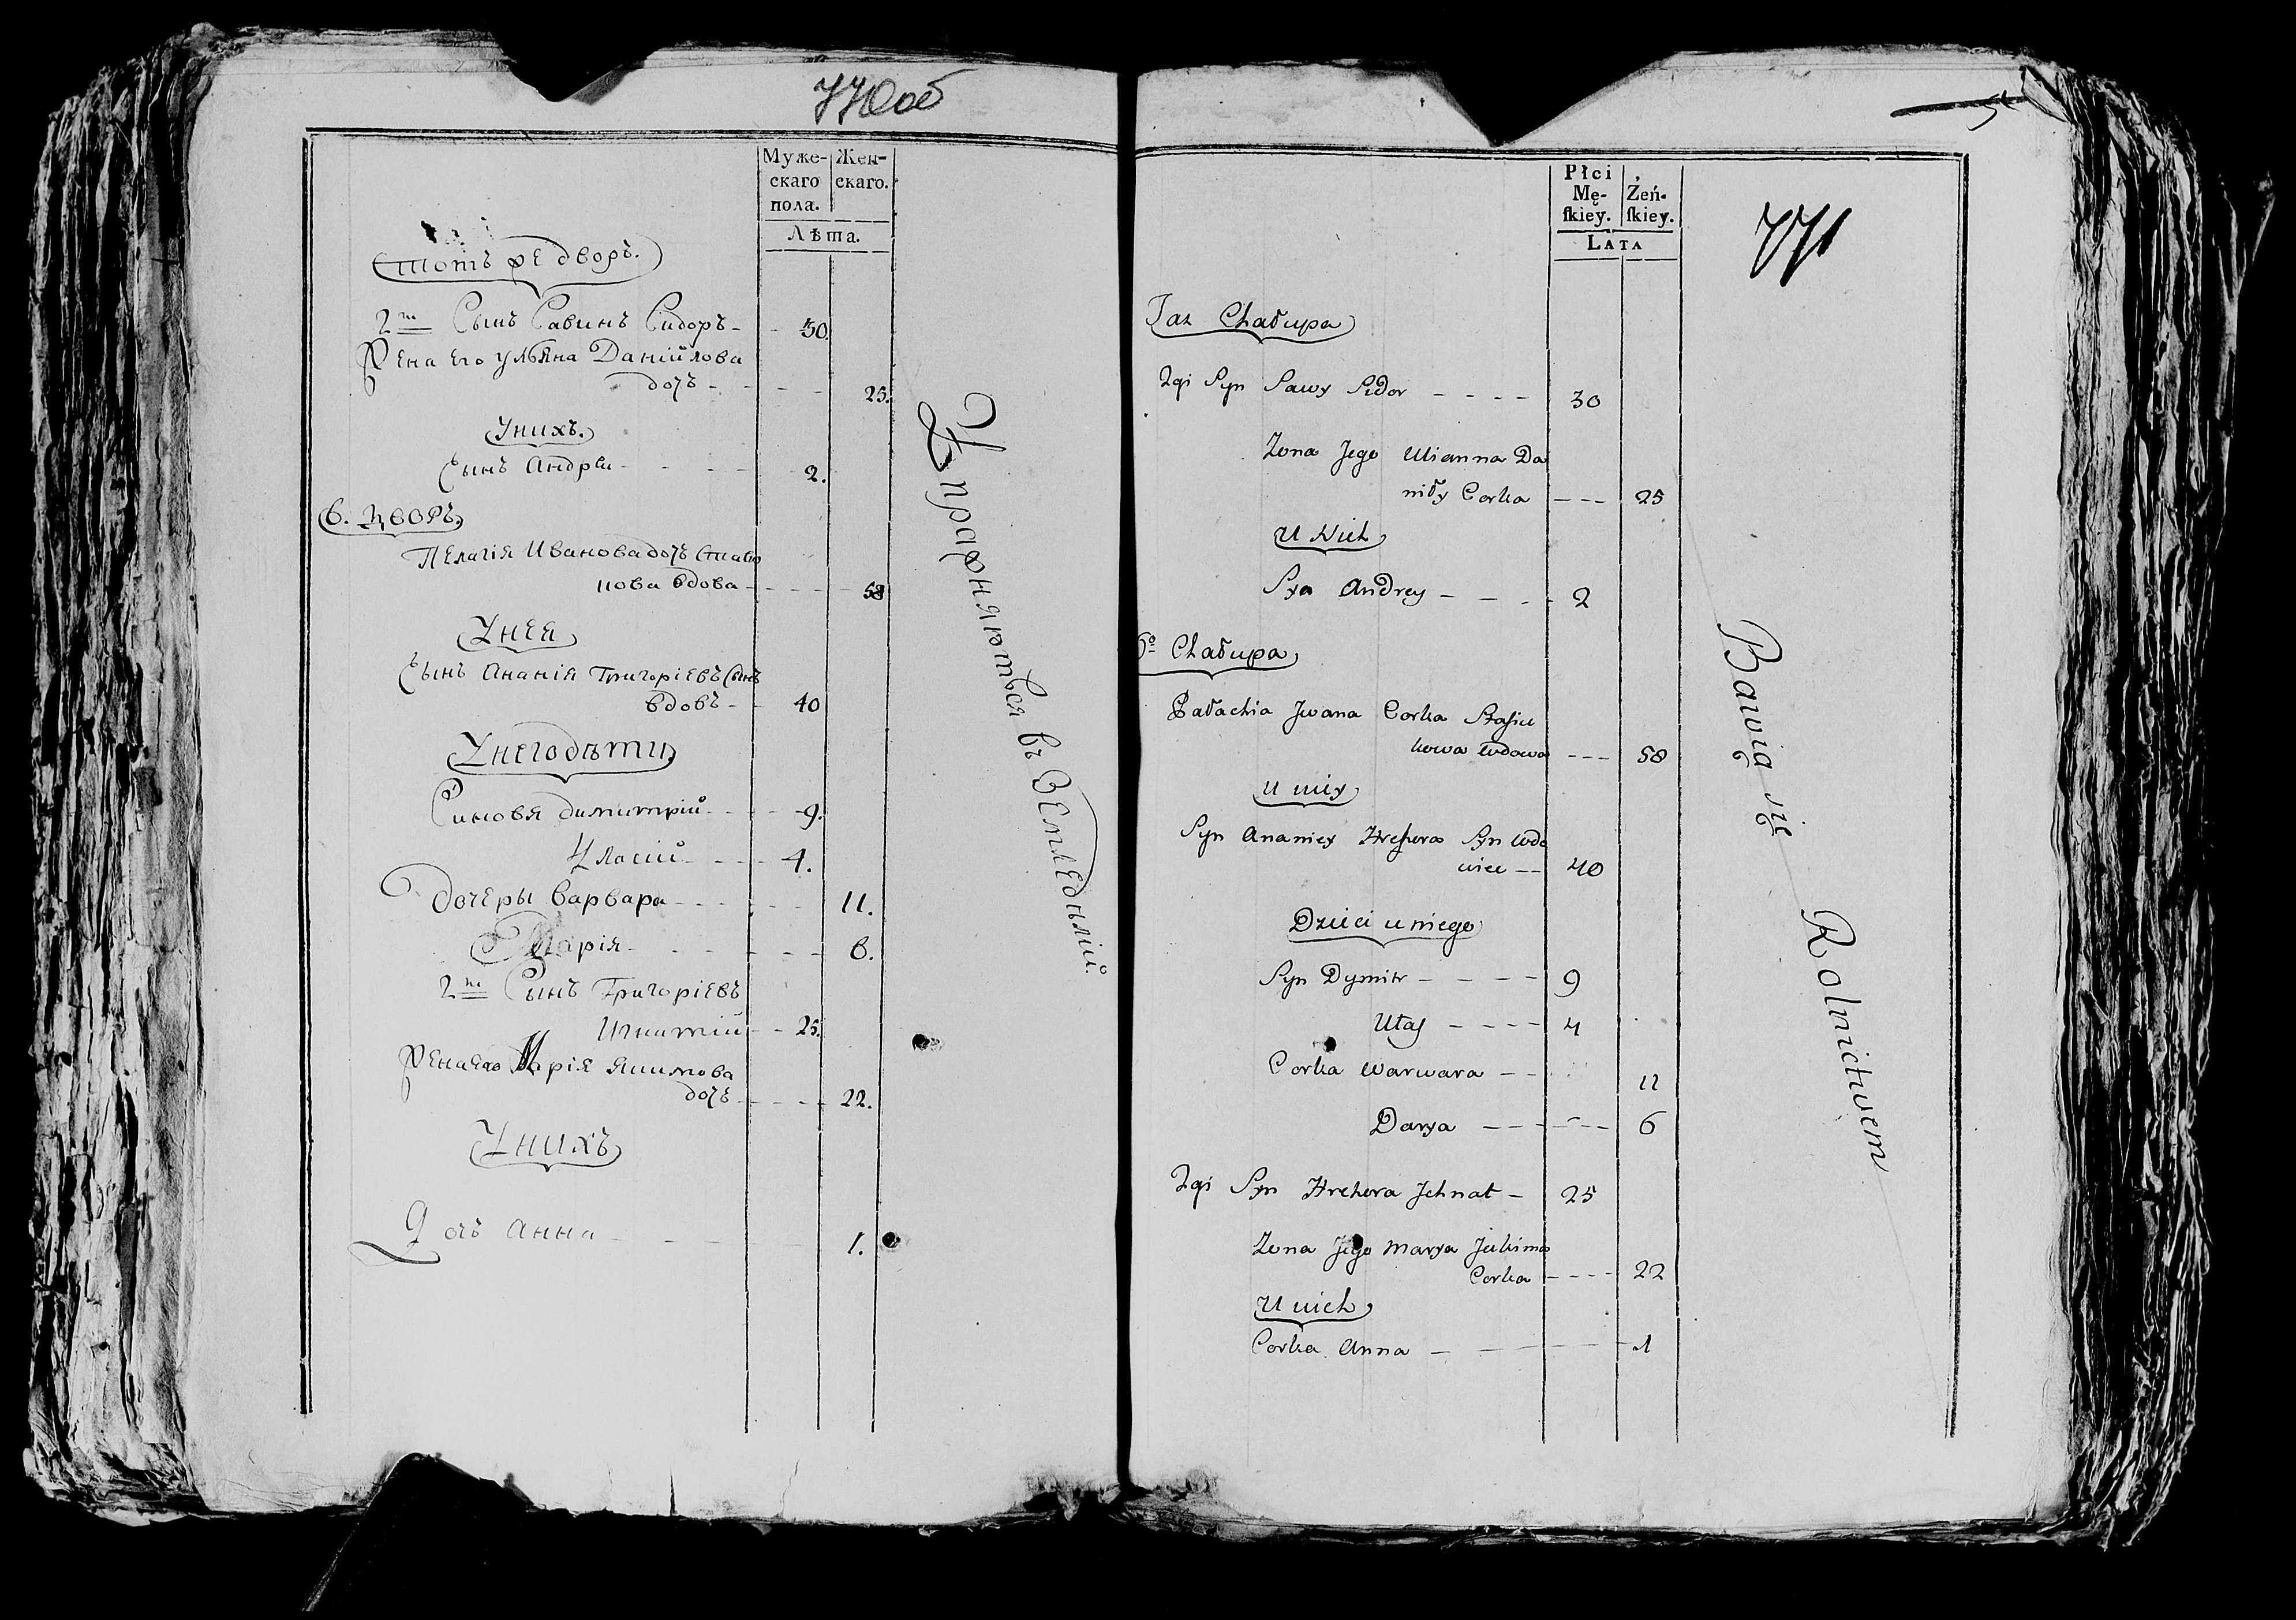 770об
Муже-
скаго
пола.
Жен-
скаго.
Лѣта.
тотъ же дворъ.
2й Сынъ Савинъ Сидоръ - 30.
Жена Его Ульяна Данійлова
дочъ - 25.
Унихъ.
Сынъ Андрѣй - 2.
6. Дворъ.
Пелагія Иванова дочъ
нова вдова - 58
Унея
Сынъ Ананія Григоріевъ Сынъ
вдовъ - 40
Унегодѣти
Синовя Димитрій - 9.
Уласій - 4.
Дочеры Варвара - 11.
Марія - 6.
2й Сынъ Григоріевъ
Игнатій - 25.
Жена Его Марія Якимова
дочъ - 22.
Унихъ
Дочъ Анна - 1.
Упражняются въ Земледѣлій.
Płci
Mę-
ſkiey.
Żeń-
ſkiey.
LATA
771
Taz Chałupa
2gi Syn Sawy Sidor - - - - 30
Zona Jego Ulianna Da
niły Corka - - - 25
U Nich
Syn Andrey - - - 2
6o Chałupa
Pałachia Jwana Corka Stasiu
kowa wdowa - - - 58
U niey
Syn Ananiey Hrehora Syn wdo
wiec - - 40
Dzieci u niego
Syn Dymitr - - - - 9
Ułas - - - - 4
Corka Warwara - - 11
Darya - - - - - 6
2gi Syn Hrehora Jehnat - 25
Zona Jego Marya Jakima
Corka - - - - 22
U nich
Corka Anna - - - - - 1
Bawią się Rolnictwem